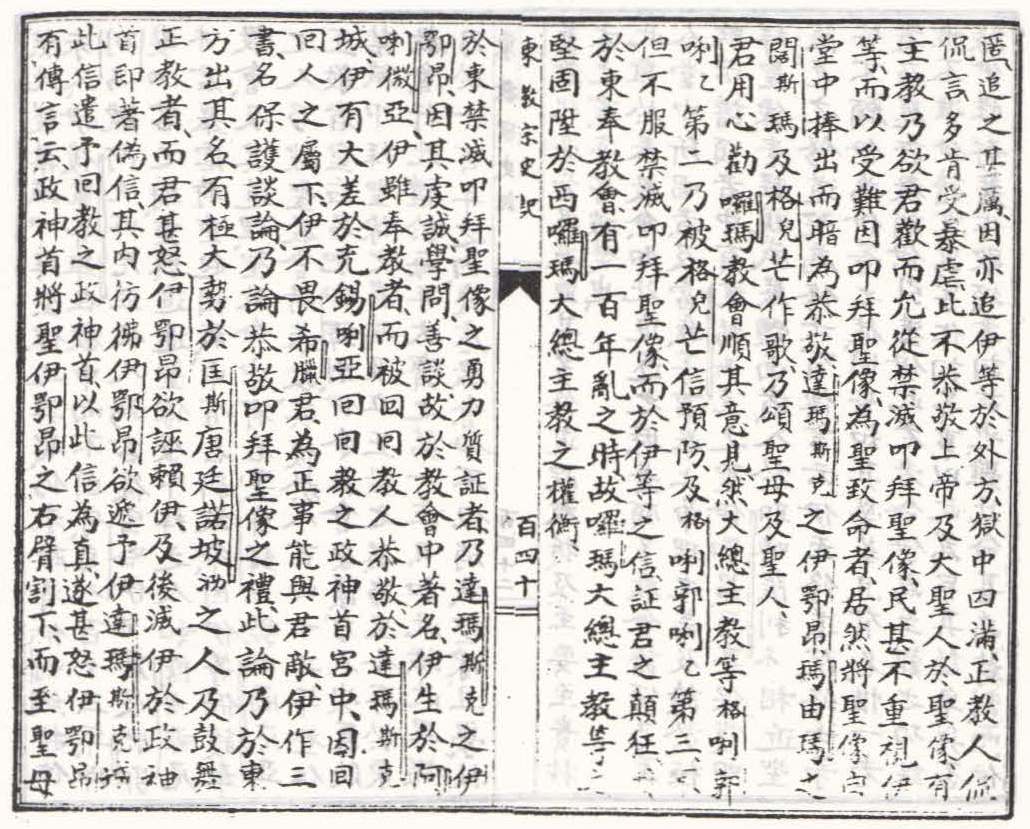 匿追之甚厲因亦追伊等於外方獄中囚滿正教人侃
侃言多肯受暴虐此不恭敬上帝及大聖人於聖像有
主教乃欲君歡而允從禁滅叩拜聖像民甚不重視伊
等而以受難因叩拜聖像為聖致命者居然將聖像自
堂中捧出而暗為恭敬達瑪斯克之伊鄂昂瑪由瑪之
闊斯瑪及格兒芒作歌乃頌聖母及聖人
君用心勸囉瑪教會順其意見然大總主教等格唎郭
唎乙第二乃被格兒芒信預防及格唎郭唎乙第三
但不服禁滅叩拜聖像而於伊等之信証君之顛狂
於東奉教會有一百年亂之時故囉瑪大總主教等
堅固陞於西囉瑪大總主教之權衡
東教宗史記
百四十
於東禁滅叩拜聖像之勇力質証者乃達瑪斯克之伊
鄂昂因其虔誠學問善談故於教會中著名伊生於阿
喇微亞伊雖奉教者而被回回教人恭敬於達瑪斯克
城伊有大差於克錫唎亞回回教之政神首宮中因回
回人之屬下伊不畏希臘君為正事能與君敵伊作三
書名保護談論乃論恭敬叩拜聖像之禮此論乃於東
方出其名有極大勢於匡斯唐廷諾坡泐之人及鼓舞
正教者而君甚怒伊鄂昂欲誣賴伊及後滅伊於政神
首印著偽信其內彷彿伊鄂昂欲遞予伊達瑪斯克
此信遣予回教之政神首以此信為真遂甚怒伊鄂昂
有傳言云政神首將聖伊鄂昂之右臂割下而至聖母